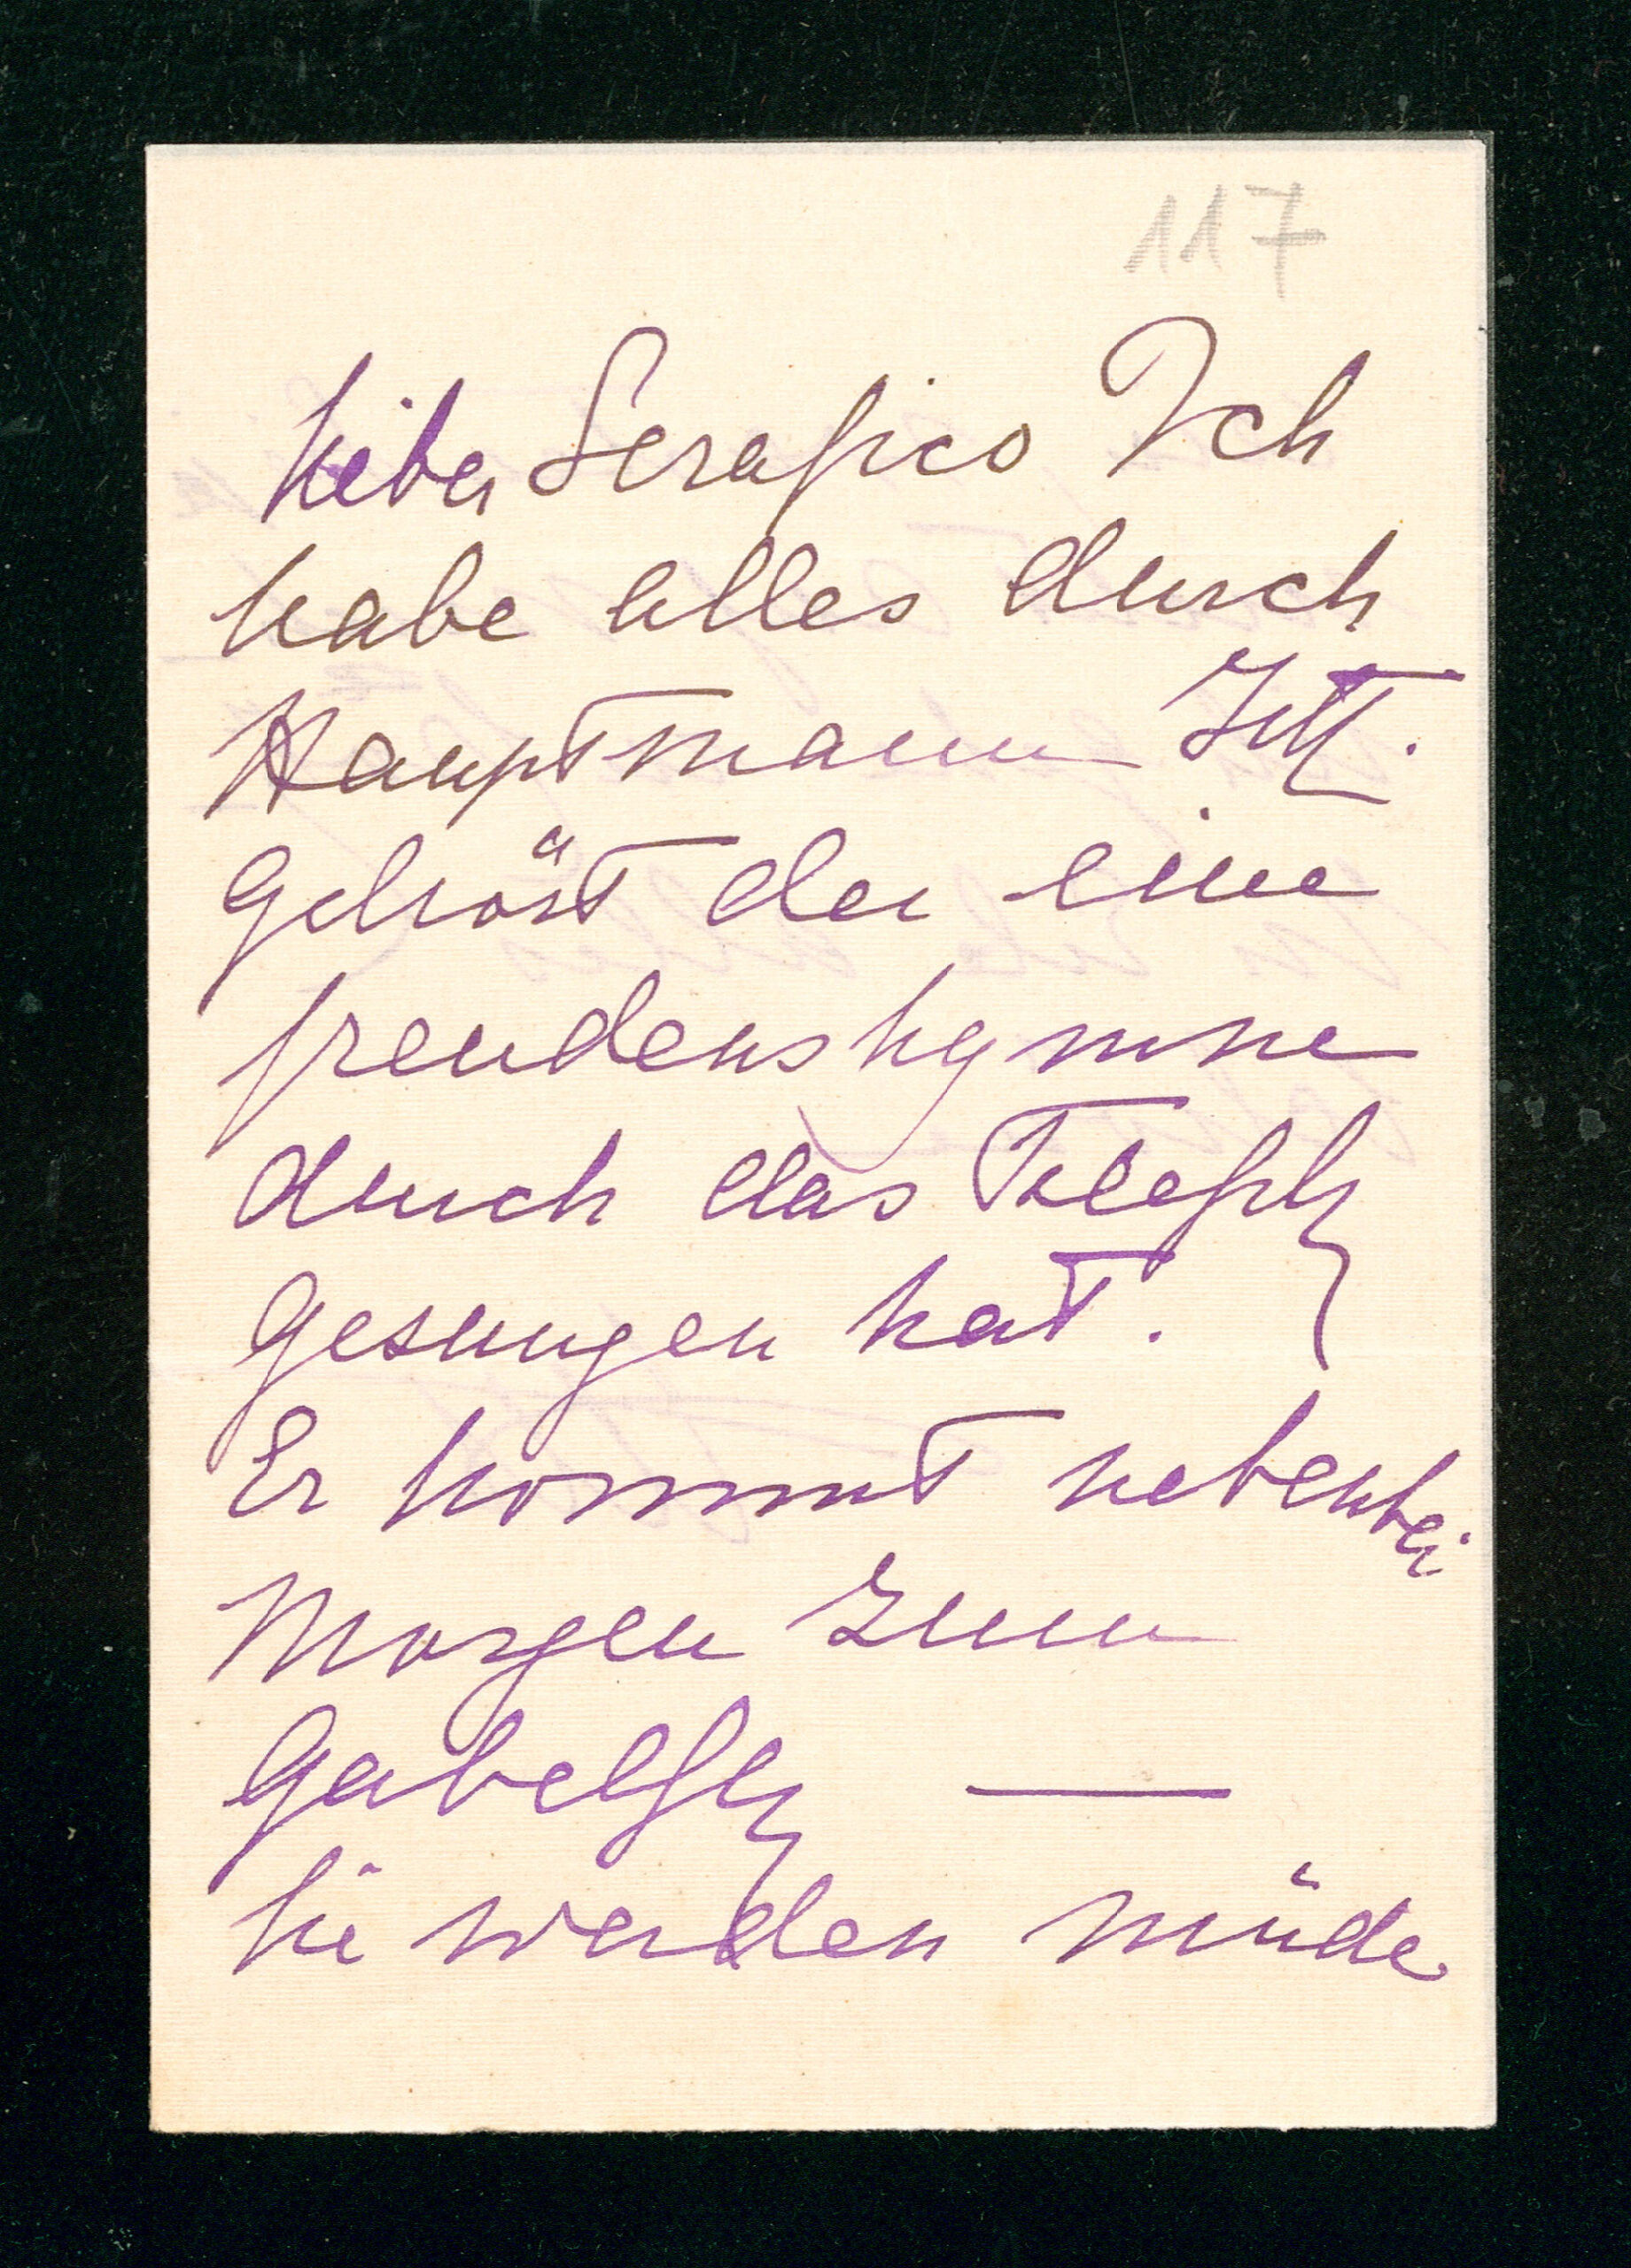 117
lieber Serafico Ich
habe alles durch
Hauptmann
gehört der eine
freudenshymne
durch das Teleph
gesungen hat.
Er kommt nebenbei
Morgen zum
Gabelfh
Sie werden müde